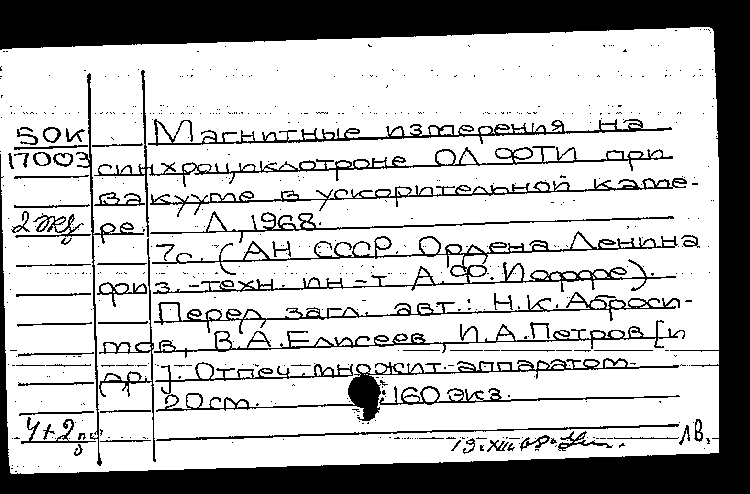 БОК Магнитные измерения на
17003 синхроциклотроне ОЛ ФТИ при
вакууме в ускорительной каме-
2 экз ре. Л., 1968.
7с. (АН СССР. Ордена Ленина
физ.-техн. ин-т А.Ф. Иоффе).
Перед загл. авт.: Н.К. Аброси-
мов, В.А. Елисеев, И.А. Петров [и
др.]. Отпеч. множит. аппаратом.
20 см. 160 экз.
4+2
19.XII.68. ЛВ.